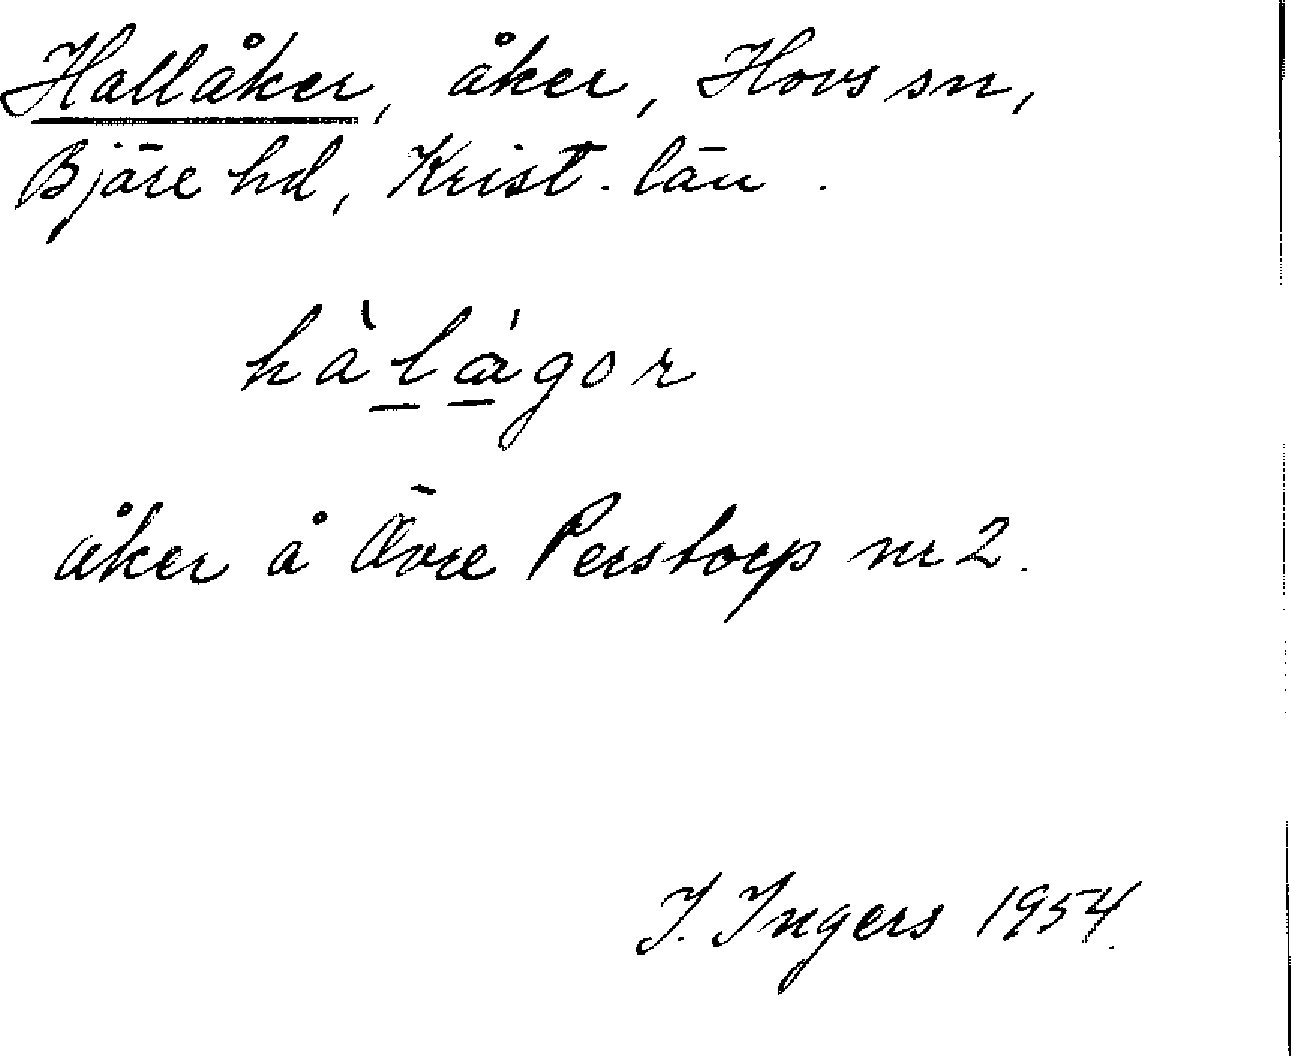 Hallåker, åker, Hovs sn,
Bjäre hd, Krist. län.
hàlágor
åker å Övre Perstorp nr 2.
I. Ingers 1954.